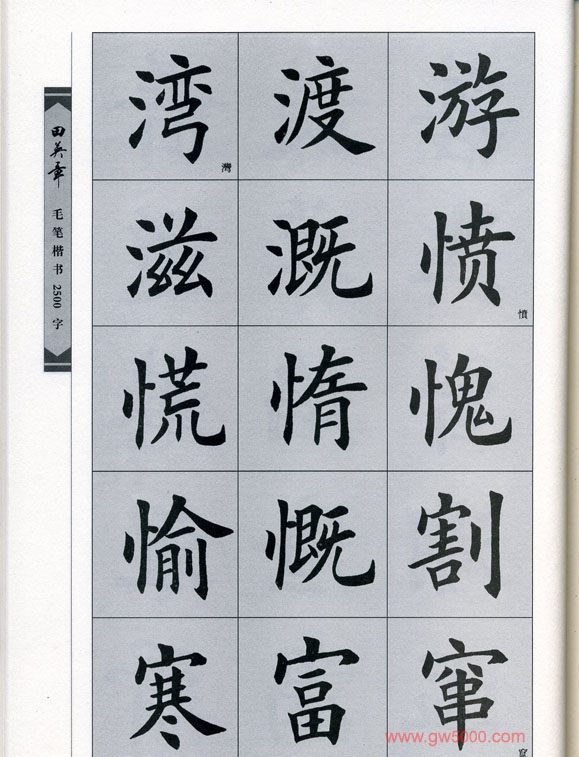 田英章 毛笔楷书2500字
湾 灣 渡 游
滋 溉 愤 憤
慌 惰 愧
愉 慨 割
寒 富 窜
www.gw5000.com